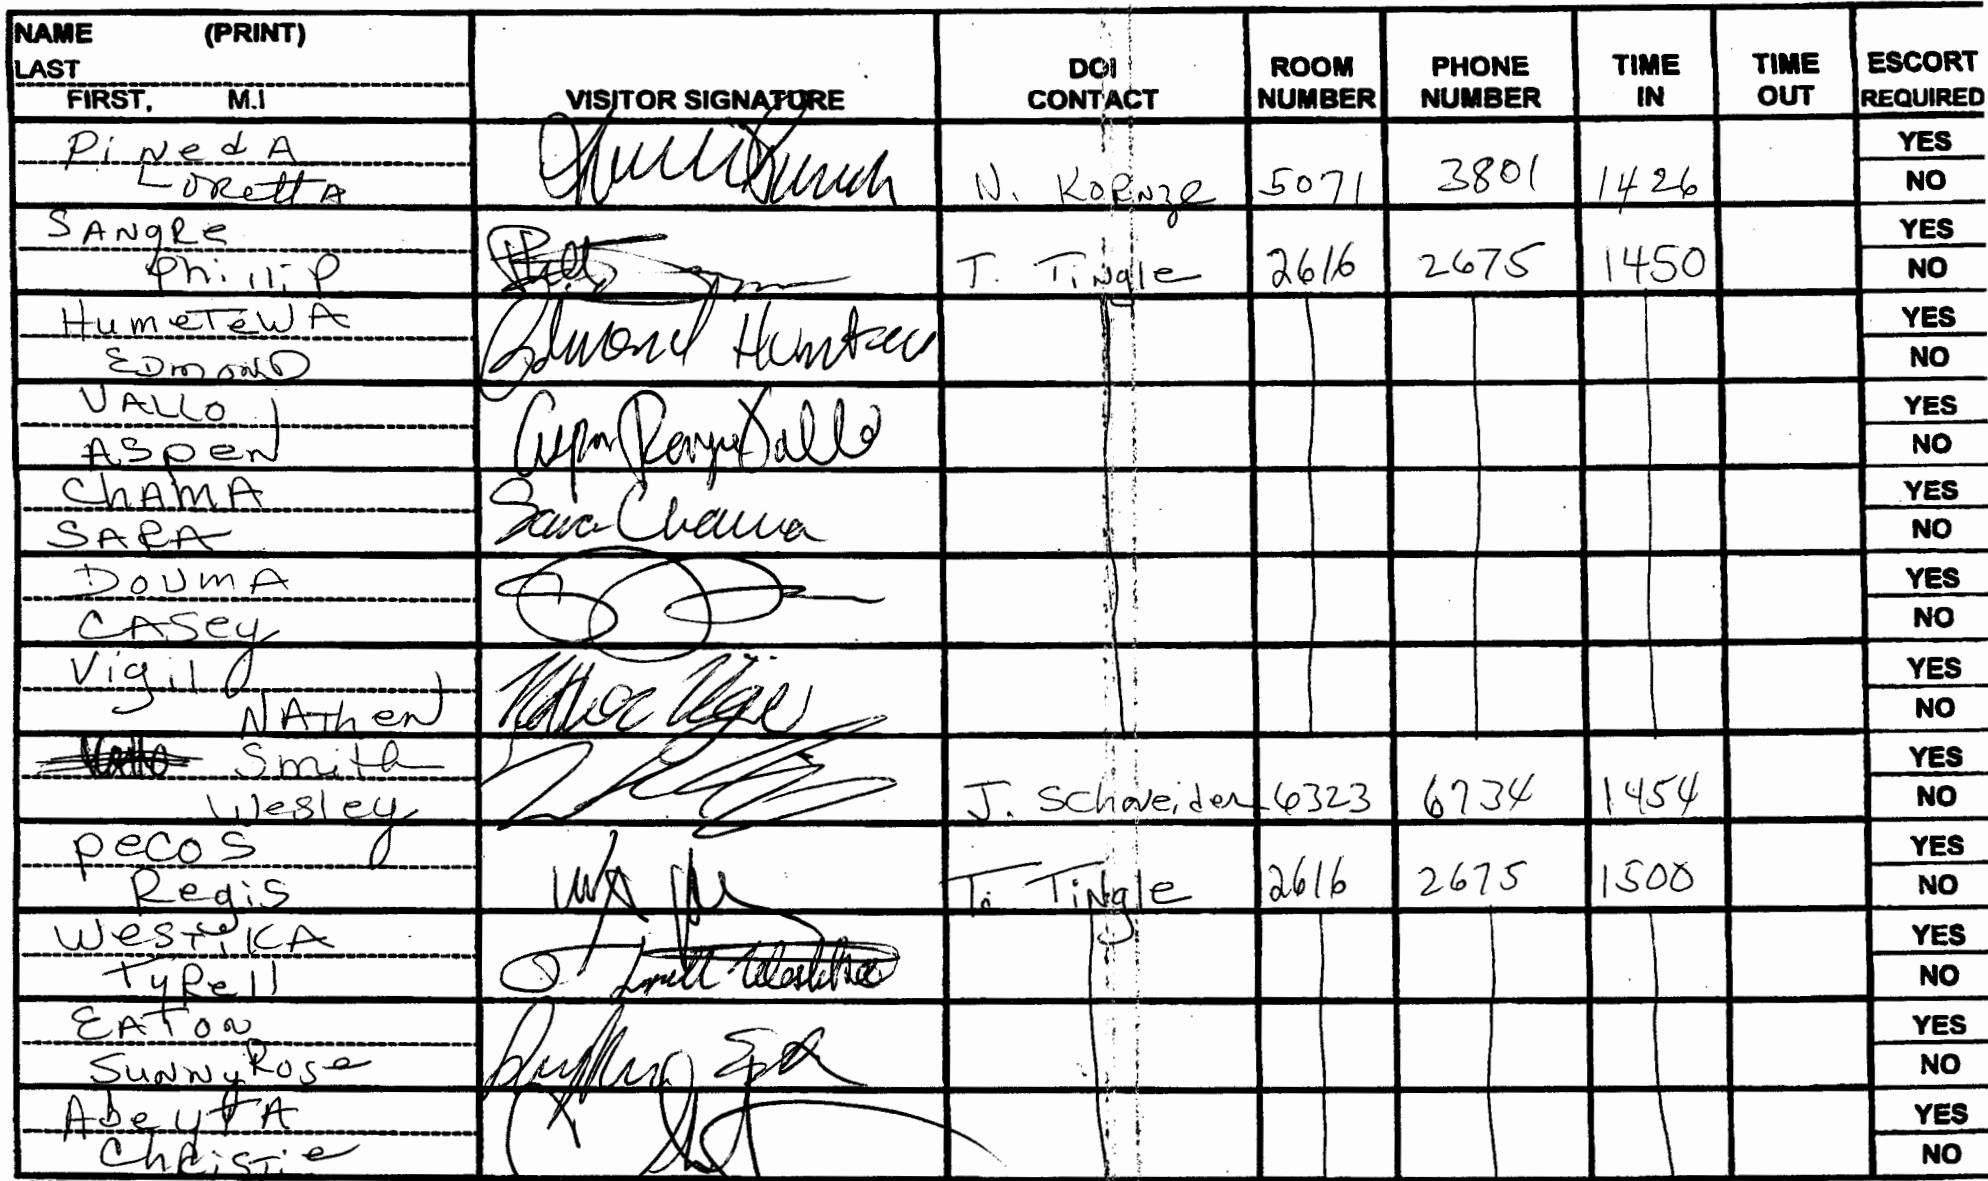 NAME (PRINT)
LAST
FIRST, M.I
VISITOR SIGNATURE
DOI
CONTACT
ROOM
NUMBER
PHONE
NUMBER
TIME
IN
TIME
OUT
ESCORT
REQUIRED
PiNedA
LorettA
N. Kornze 5071 3801 1426
YES
NO
SANgRe
PhilliP
T. Tingle 2616 2675 1450
YES
NO
HumeTewA
EDmonD
Edmond
YES
NO
VALLO
ASpen
Vallo
YES
NO
ChAmA
SARA
Sara Chama
YES
NO
DOUmA
CASey
YES
NO
Vigil
NAThen
YES
NO
Smith
Wesley
J. Schneider 6323 6734 1454
YES
NO
pecos
Regis
T. Tingle 2616 2675 1500
YES
NO
WesTiKA
TyRell
YES
NO
EATon
SuNNyRose
YES
NO
AbeytA
ChRisTie
YES
NO